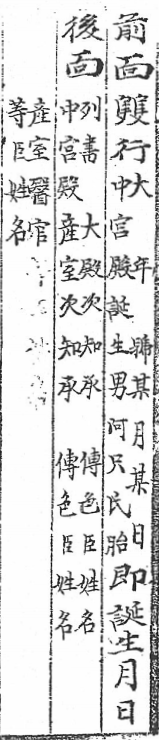 前面雙行大年號某月某日
中宮殿誕生男阿只民胎即誕生月日
後面列書大殿次知承傳色臣姓名
中宮殿産室次知承傳色臣姓名
産室醫官
等臣姓名